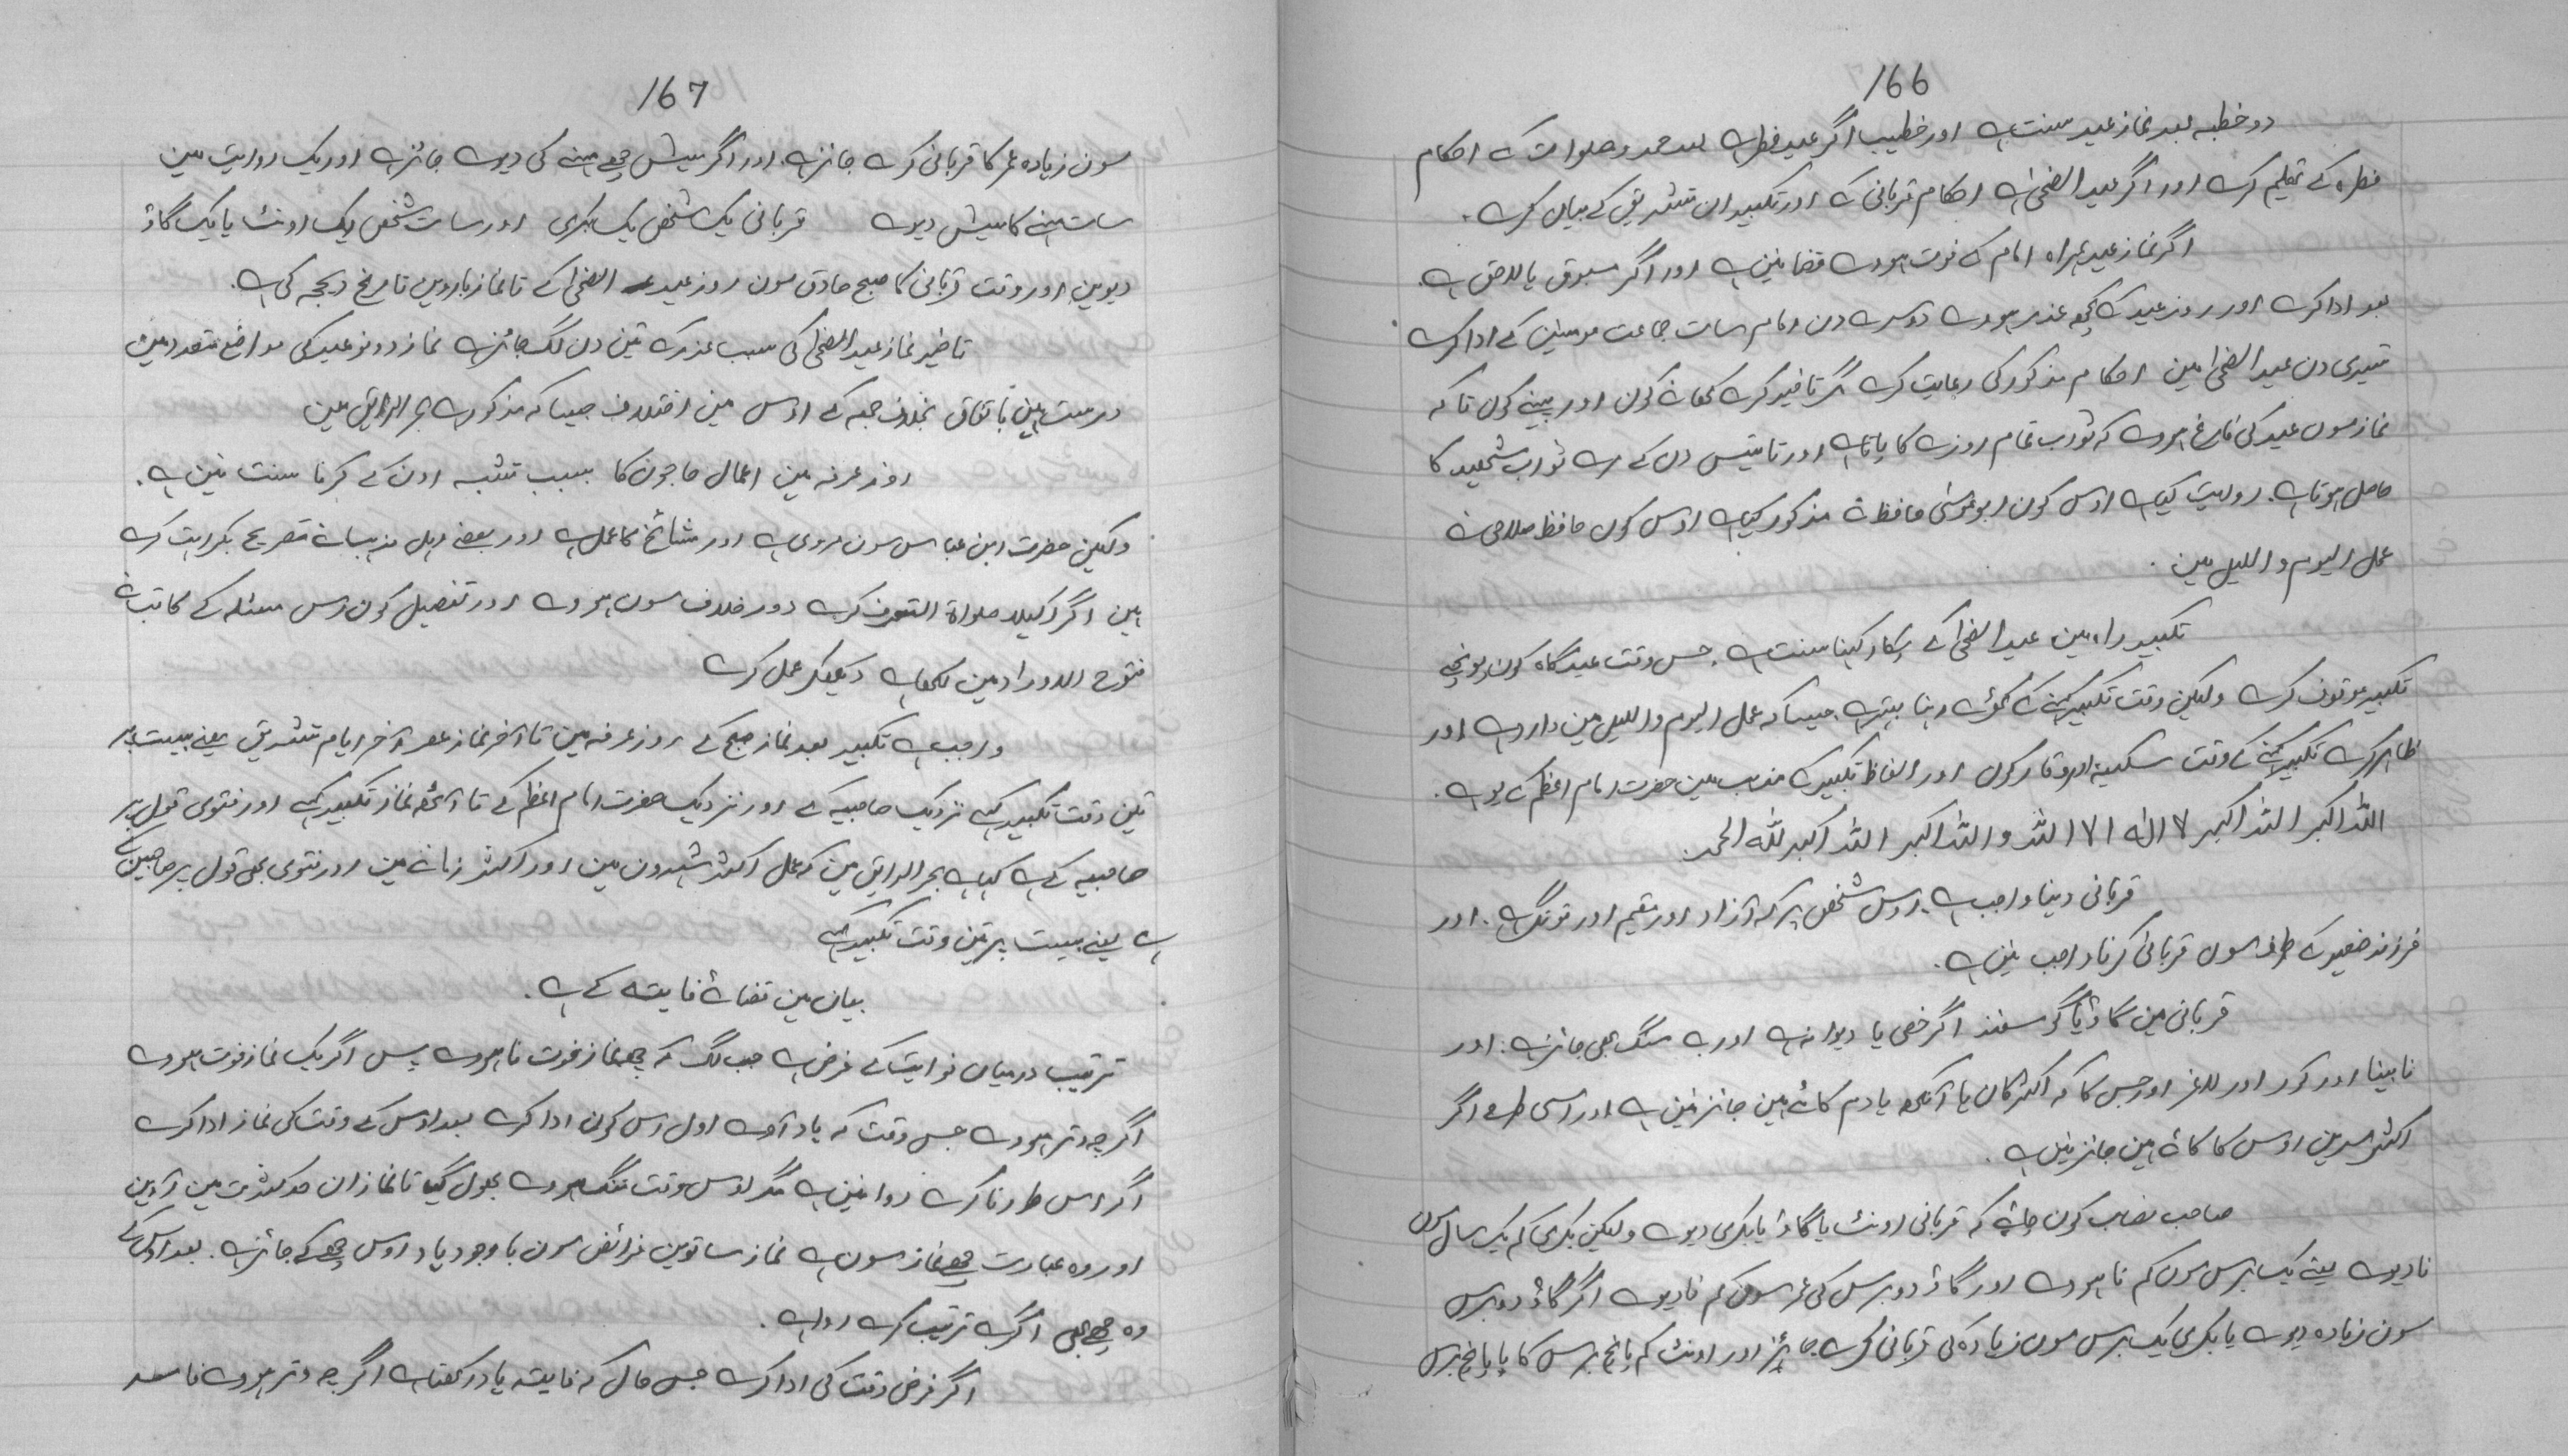 166
دو خطبہ بعد نماز عید سنت ہے اور خطیب اگر عید فطر ہے بعد حمد و صلوات کے احکام
فطرہ کے تعلیم کرے اور اگر عید الضحیٰ ہے احکام قربانی کے اور تکبیران تشریق کے بیان کرے۔
اگر نماز عید ہمراہ امام کے فوت ہووے قضا نین ہے اور اگر مسبوق یا لاحق ہے
بعد ادا کرے اور روز عید کے کچھ عذر ہووے دوسرے دن امام سات جماعت مومنین کے ادا کرے
تیسری دن عید الضحیٰ مین احکام مذکور کی رعایت کرے مگر تاخیر کرے کھانے کون اور پینے کون تا کہ
نماز سون عید کی فارغ ہووے کہ ثواب تمام روزے کا پاتا ہے اور تا تیس دن کے مرے ثواب شہید کا
حاصل ہوتا ہے۔ روایت کیا ہے اوس کون ابو موسیٰ حافظ نے مذکور کیا ہے اوس کون حافظ صلاحی نے
عمل الیوم واللیل مین۔
تکبیر راہ مین عید الضحیٰ کے پکار کہنا سنت ہے۔ جس وقت عیدگاہ کون پونچے
تکبیر موقوف کرے ولیکن وقت تکبیر کہنے کے کھڑے رہنا بہتر ہے جیسا کہ عمل الیوم واللیل مین وارد ہے اور
ظاہر کرے تکبیر کہنے کے وقت سکینہ اور وقار کون اور الفاظ تکبیر کے مذہب مین حضرت امام اعظم کے یو ہے۔
اللہ اکبر اللہ اکبر لا الٰہ الا اللہ و اللہ اکبر اللہ اکبر للہ الحمد
قربانی دینا واجب ہے اوس شخص پر کہ آزاد اور مقیم اور تونگر ہے۔ اور
فرزند صغیر کے طرف سون قربانی کرنا واجب نین ہے۔
قربانی مین گاؤ یا گوسفند اگر خصی یا دیوانہ ہے اور بے سنگ بھی جائز ہے۔ اور
نابینا اور کور اور لاغر اور جس کا کہ اکثر کان یا آنکھ یا دم کاٹے ہین جائز نین ہے اور اسی طرے اگر
اکثر سرین اوس کا کاٹے ہین جائز نین ہے۔
صاحب نصاب کون چاہئے کہ قربانی اونٹ یا گاؤ یا بکری دیوے ولیکن بکری کم یک سال سون
نا دیوے یعنے یک برس سون کم نا ہووے اور گاؤ دو برس کی عمر سون کم نا دیوے اگر گاؤ دو برس
سون زیادہ دیوے یا بکری یک برس سون زیادہ کی قربانی کرے جائز اور اونٹ کم پانچ برس کا یا پانچ برس
167
سون زیادہ عمر کا قربانی کرے جائز ہے اور اگر میش چھے مہنے کی دیوے جائز ہے اور یک روایت مین
سات مہنے کا میش دیوے قربانی یک شخص یک بکری اور سات شخص یک اونٹ یا یک گاؤ
دیوین اور وقت قربانی کا صبح صادق سون روز عید الضحیٰ کے تا نماز بارویں تاریخ ذیحجہ کی ہے۔
تاخیر نماز عید الضحیٰ کی سبب عذر کے تین دن لگ جائز ہے نماز دونو عید کی مواضع متعدد مین
درست ہین باتفاق بخلاف جمعہ کے اوس مین اختلاف جیسا کہ مذکور ہے بحر الرائق مین
روز عرفہ مین اعمال حاجیون کا بسبب تشبہ اون کے کرنا سنت نین ہے۔
ولکین حضرت ابن عباس سون مروی ہے اور مشائخ کا عمل ہے اور بعضے اہل مذہب نے تصریح بکراہت کرے
ہین اگر اکیلا صلواۃ التعرف کرے دور خلاف سون ہووے اور تفصیل کون اس مسئلہ کے کاتب نے
فتوح الاوراد مین لکھا ہے دیکھکر عمل کرے
واجب ہے تکبیر بعد نماز صبح کے روز عرفہ مین تا آخر نماز عصر آخر ایام تشریق یعنے بیست پر
تین وقت تکبیر کہے نزدیک صاحبیہ کے اور نزدیک حضرت امام اعظم کے تا آٹھ نماز تکبیر کہے اور فتوی قول پر
صاحبیہ کے ہے کہا ہے بحر الرایق مین کہ عمل اکثر شہرون مین اور اکثر زمانے مین اور فتوی بھی قول پر صاحبین کے
ہے یعنے بیست پر تین وقت تکبیر کہے
بیان مین قضائے فایتہ کے ہے۔
ترتیب درمیان فوایت کے فرض ہے جب لگ کہ چھ نماز فوت نا ہووے پس اگر یک نماز فوت ہووے
اگرچہ وتر ہووے جس وقت کہ یاد آوے اول اس کون ادا کرے بعد اوس کے وقت کی نماز ادا کرے
اگر اس طور نا کرے روا نین ہے مگر اوس وقت تنگ ہووے بھول گیا تا نماز ان حد کثرت مین آوین
اور وہ عبارت چھے نماز سون ہے نماز ساتوین فرائض سون با وجود یاد اوس چھے کے جائز ہے۔ بعد اوس کے
وہ چھے بھی اگر بے ترتیب کرے روا ہے۔
اگر فرض وقت کی ادا کرے جس حال کہ فایتہ یاد رکھتا ہے اگرچہ وتر ہووے فاسد